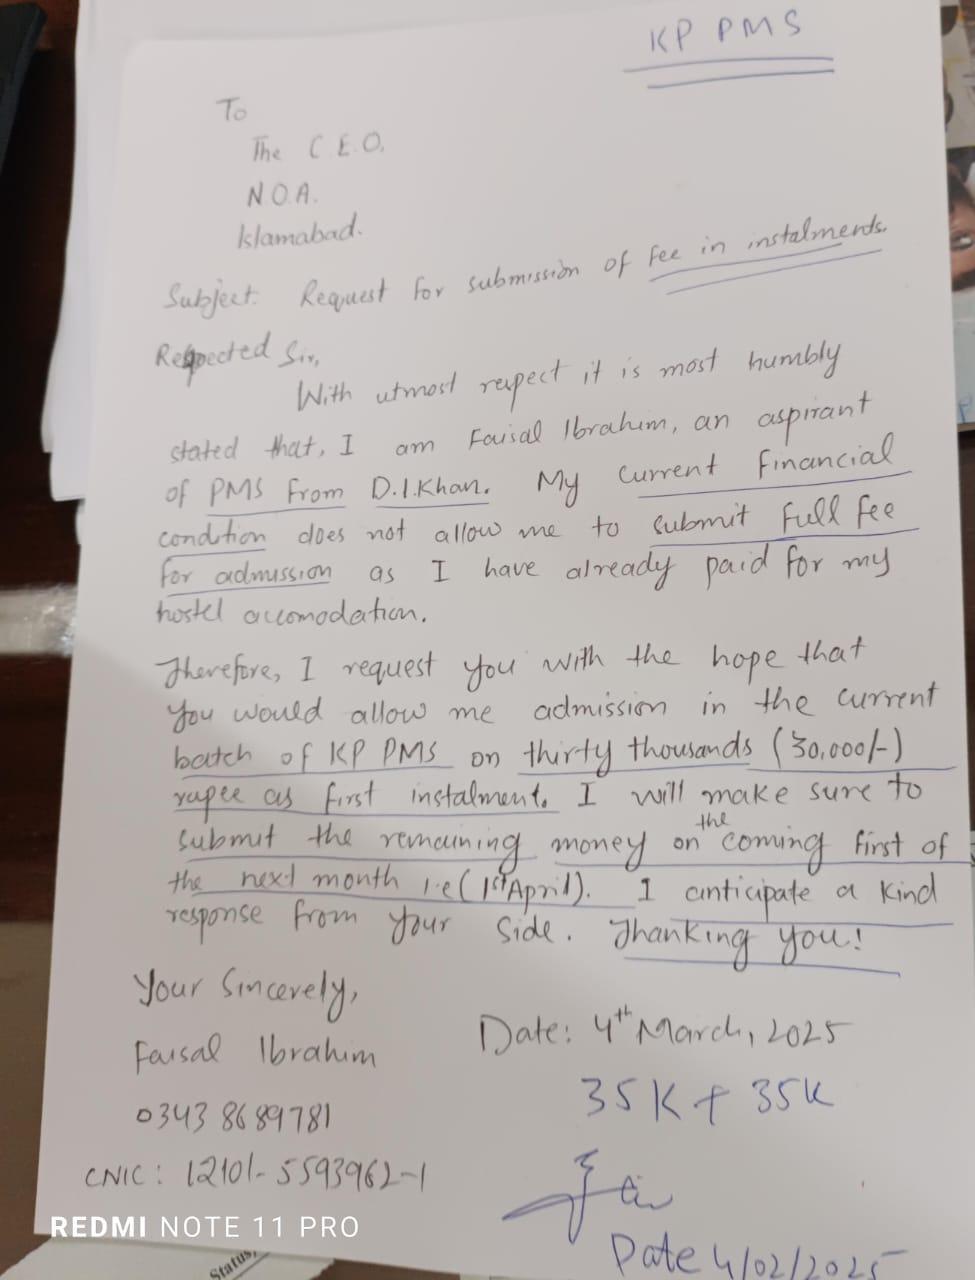 KP PMS
To
The C.E.O.
N.O.A.
Islamabad.
Subject: Request for submission of fee in instalments.
Respected Sir,
With utmost respect it is most humbly
stated that, I am Faisal Ibrahim, an aspirant
of PMS from D.I.Khan. My current financial
condition does not allow me to submit full fee
for admission as I have already paid for my
hostel accomodation.
Therefore, I request you with the hope that
you would allow me admission in the current
batch of KP PMS on thirty thousands (30,000/-)
rupee as first instalment. I will make sure to
submit the remaining money on the coming first of
the next month i.e (1st April). I anticipate a kind
response from your side. Thanking you!
Your Sincerely,
Faisal Ibrahim
Date: 4th March, 2025
35K + 35K
0343 8689781
CNIC: 12101-5593962-1
Date 4/02/2025
REDMI NOTE 11 PRO
Status,